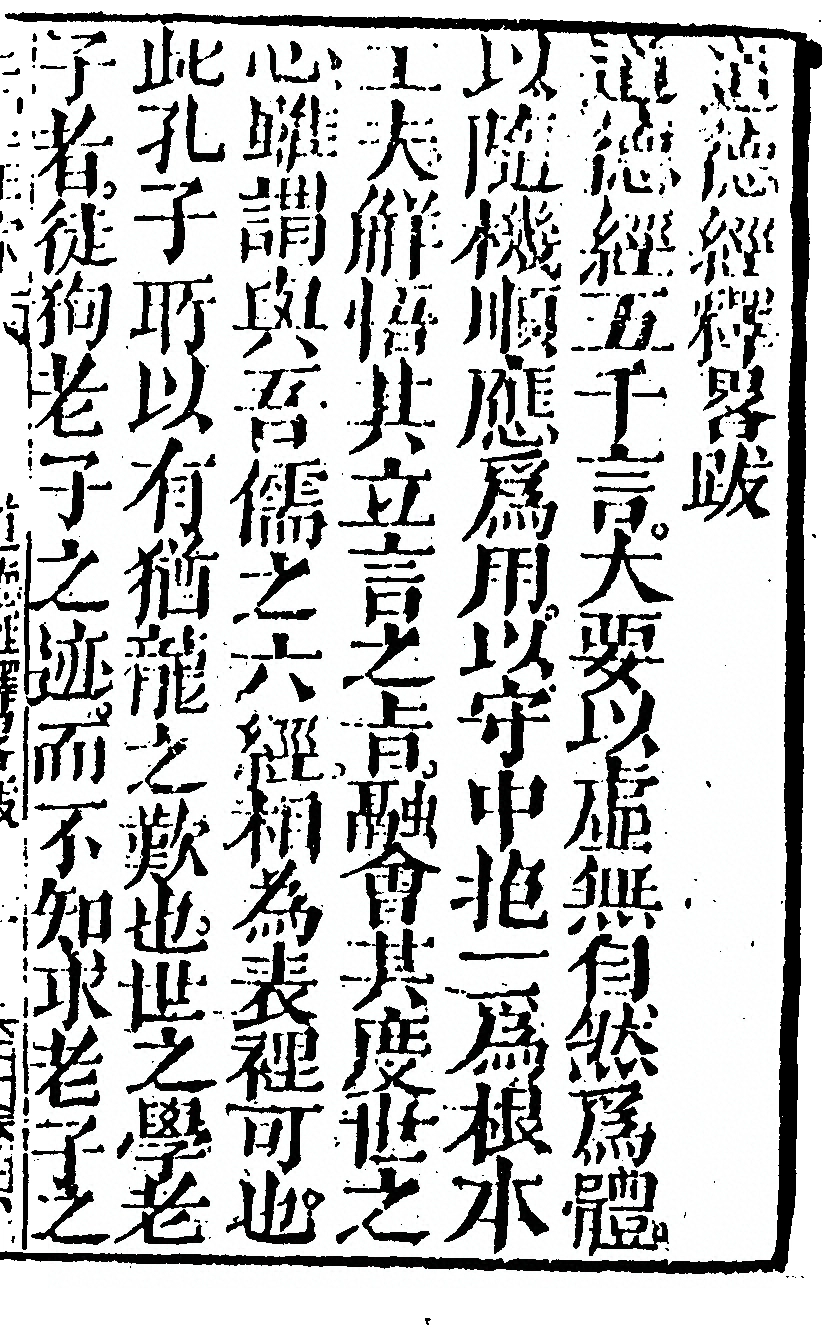 道德經釋畧跋
道德經五千言。大要以虛無自然爲體。
以隨機順應爲用。以守中抱一爲根本
工夫觧悟其立言之㫖。融會其度世之
心雖謂與吾儒之六經相為表裡可也。
此孔子所以有猶龍之歎也。世之學老
子者。徒狥老子之迹。而不知求老子之